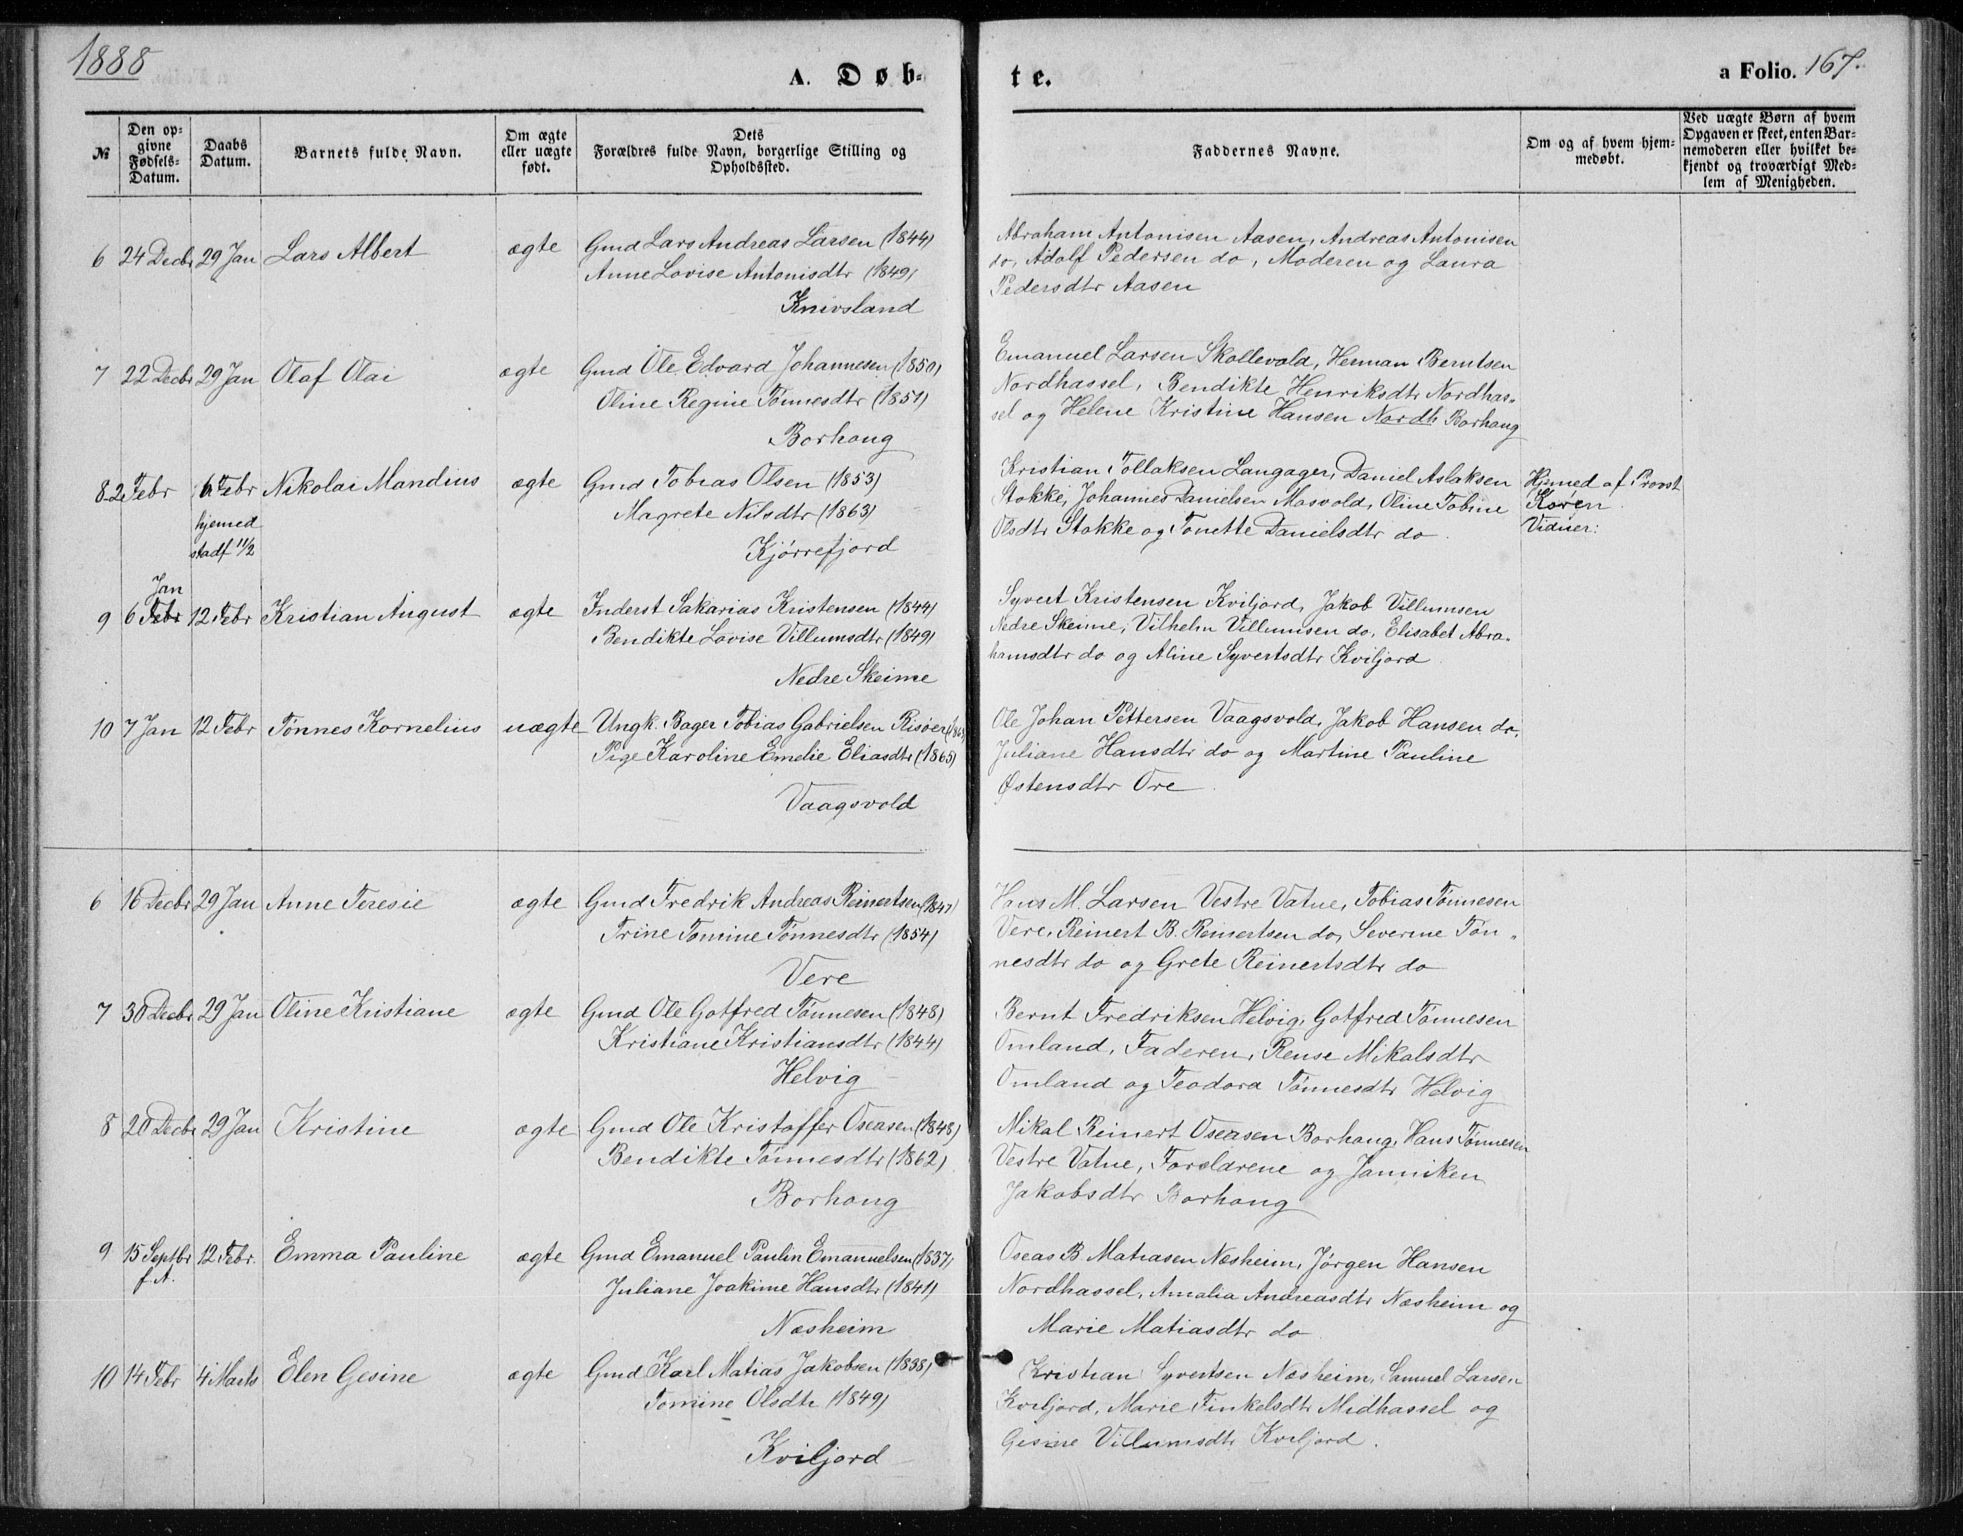 1888
A. Døb-
te.
a Folio. 167.
№
Den op-
givne
Fødsels-
Datum.
Daabs
Datum.
Barnets fulde Navn.
Om ægte
eller uægte
født.
Dets
Forældres fulde Navn, borgerlige Stilling og
Opholdssted.
Faddernes Navne.
Om og af hvem hjem-
medøbt.
Ved uægte Børn af hvem
Opgaven er skeet, enten Bar-
nemoderen eller hvilket be-
kjendt og troværdigt Med-
lem af Menigheden.
6 24 Decbr 29 Jan Lars Albert ægte Gmd Lars Andreas Larsen (1844)
Anne Lovise Antonisdtr (1849)
Knivsland
Abraham Antonisen Aasen, Andreas Antonisen
do, Adolf Pedersen do, Moderen og Laura
Pedersdtr Aasen
7 22 Decbr 29 Jan Olaf Olai ægte Gmd Ole Edvard Johannesen (1850)
Oline Regine Tønnesdtr (1851)
Borhaug
Emanuel Larsen Skollevold, Herman Berntsen
Nordhassel, Bendikte Henriksdtr Nordhas-
sel og Helene Kristine Hansen Nordh Borhaug
8 2 Febr 6 Febr Nikolai Mandius ægte Gmd Tobias Olsen (1853)
hjemed
stadf 11/2
Magrete Nilsdtr (1863)
Kjørrefjord
Kristian Tollaksen Langager, Daniel Aslaksen
Stokke, Johannes Danielsen Mosvold, Oline Tobine
Olsdtr Stokke og Tonette Danielsdtr do
Hjemed af Provst
Koren
Vidner:
Jan
9 6 Febr 12 Febr Kristian August ægte Inderst Sakarias Kristensen (1844)
Bendikte Lovise Villumsdtr (1849)
Nedre Skeime
Syvert Kristensen Kviljord, Jakob Villumsen
Nedre Skeime, Vilhelm Villumsen do, Elisabet Abra-
hamsdtr do og Aline Syvertsdtr Kviljord
10 7 Jan 12 Febr Tønnes Kornelius uægte Ungk. Bager Tobias Gabrielsen Risøer
Pige Karoline Emelie Eliasdtr (1865)
Vaagsvold
Ole Johan Pettersen Vaagsvold, Jakob Hansen do,
Juliane Hansdtr do og Martine Pauline
Østensdtr Ore
6 16 Decbr 29 Jan Anne Teresie ægte Gmd Fredrik Andreas Reinertsen (1847)
Trine Tomine Tønnesdtr (1854)
Vere
Hans M. Larsen Vestre Vatne, Tobias Tønnesen
Vere, Reinert B. Reinertsen do, Severine Tøn-
nesdtr do og Grete Reinertsdtr do
7 30 Decbr 29 Jan Oline Kristiane ægte Gmd Ole Gotfred Tønnesen (1848)
Kristiane Kristiansdtr (1844)
Helvig
Bernt Fredriksen Helvig, Gotfred Tønnesen
Omland, Faderen, Rense Mikalsdtr
Omland og Teodora Tønnesdtr Helvig
8 20 Decbr 29 Jan Kristine ægte Gmd Ole Kristoffer Oseasen (1848)
Bendikte Tønnesdtr (1862)
Borhaug
Mikal Reinert Oseasen Borhaug, Hans Tønnesen
Vestre Vatne, Forældrene og Janniken
Jakobsdtr Borhaug
9 15 Septbr 12 Febr. Emma Pauline ægte Gmd Emanuel Paulin Emanuelsen (1837)
f. A.
Juliane Joakime Hansdtr (1841)
Næsheim
Oseas B Matiasen Næsheim, Jørgen Hansen
Nordhassel, Amalia Andreasdtr Næsheim og
Marie Matiasdtr do
10 14 Febr 4 Marts Elen Gesine ægte Gmd Karl Matias Jakobsen (1838)
Tomine Olsdtr (1849)
Kviljord
Kristian Syvertsen Næsheim, Samuel Larsen
Kviljord, Marie Finkelsdtr Midhassel og
Gesine Villumsdtr Kviljord.